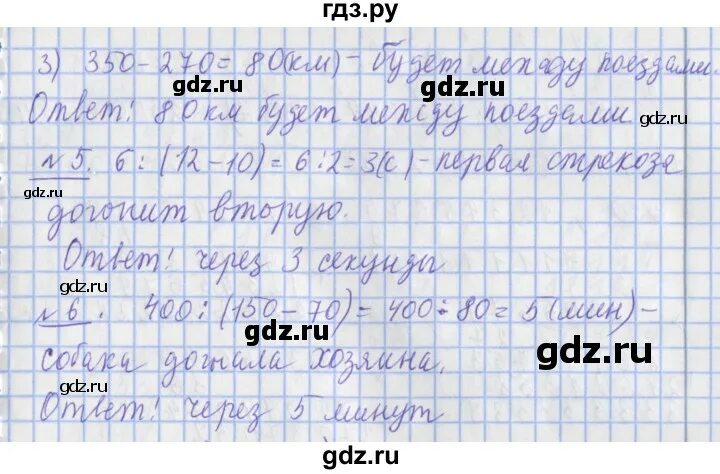 гдз.ру
3) 350-270=80(км)- будет между поездами.
gdz.ru gdz.ru
Ответ! 80 км будет между поездами
gdz.ru gdz.ru
№5. 6:(12-10)=6:2=3(с)-первая стрекоза
gdz.ru gdz.ru
догонит вторую.
gdz.ru
Ответ! через 3 секунды
gdz.ru
№6. 400:(150-70)=400:80=5(мин)-
gdz.ru
собака догнала хозяина.
gdz.ru gdz.ru
Ответ! через 5 минут
gdz.ru